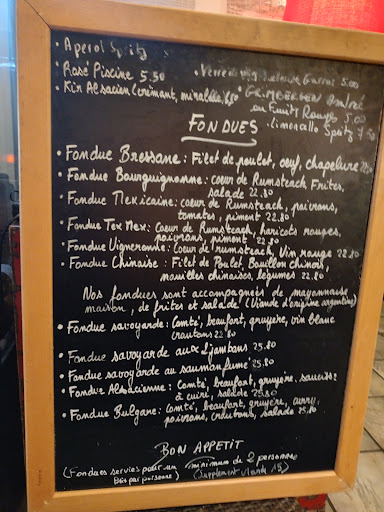 • Aperol Spritz
• Rosé Piscine 5.50
• Kir Alsacien (crémant, mirabelle,
5.00
• GRIMBERGEN
ou Fruits Rouges 5.00
• limoncello Spritz 7.50
FONDUES
• Fondue Bressane : Filet de poulet, oeuf, chapelure
• Fondue Bourguignonne : coeur de Rumsteack Frites,
salade 22.80
• Fondue Mexicaine : coeur de Rumsteack, poivrons,
tomates, piment 22.80
• Fondue Tex Mex : Coeur de Rumsteack, haricots rouges,
poivrons, piment 22.80
• Fondue Vigneronne : Coeur de rumsteack, Vin rouge 22.80
• Fondue Chinoise : Filet de Poulet Bouillon chinois,
nouilles chinoises, légumes 22.80
Nos fondues sont accompagnées de mayonnaise
maison, de frites et salade (Viande d'origine argentine)
• Fondue savoyarde : Comté, beaufort, gruyère, vin blanc
croutons 22.80
• Fondue savoyarde aux 2 jambons 25.80
• Fondue savoyarde au saumon fumé 25.80
• Fondue Alsacienne : Comté, beaufort, gruyère, saucisse
à cuire, salade 25.80
• Fondue Bulgare : Comté, beaufort, gruyère, curry,
poivrons, croutons, salade 25.80
BON APPETIT
(Fondues servies pour un minimum de 2 personnes
(supplement viande 15)